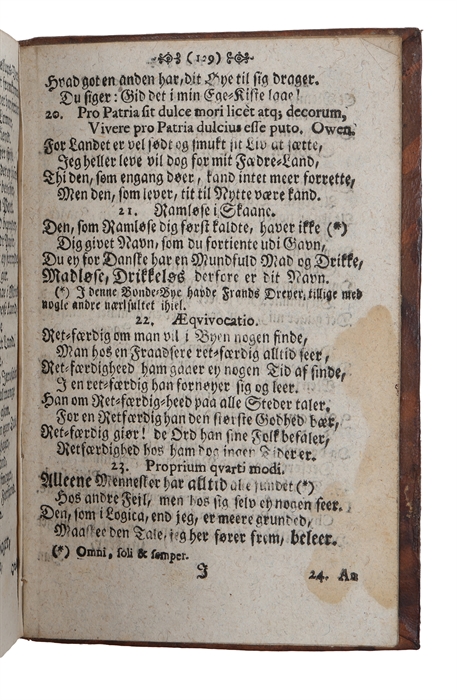 (129)
Hvad got en anden har, dit Øye til sig drager.
Du siger: Gid det i min Ege-Kiste laae!
20. Pro Patria sit dulce mori licèt atq; decorum,
Vivere pro Patria dulcius esse puto. Owen.
For Landet er vel sødt og smukt sit Liv at sætte,
Jeg heller leve vil dog for mit Fædre-Land,
Thi den, som engang døer, kand intet meer forrette,
Men den, som lever, tit til Nytte være kand.
21. Ramløse i Skaane.
Den, som Ramløse dig først kaldte, haver ikke (*)
Dig givet Navn, som du fortiente udi Gavn,
Du ey for Danske har en Mundfuld Mad og Drikke,
Madløse, Drikkeløs derfore er dit Navn.
(*) I denne Bonde-Bye havde Frands Dreyer, tillige med
nogle andre nær sultet ihiel.
22. Æqvivocatio.
Ret-færdig om man vil i Byen nogen finde,
Man hos en Fraadsere ret-færdig alltid seer,
Ret-færdigheed ham gaaer ey nogen Tid af sinde,
I en ret-færdig han fornøyer sig og leer.
Han om Ret-færdig-heed paa alle Steder taler.
For en Retfærdig han den største Godhed bær,
Ret-færdig giør! de Ord han sine Folk befaler,
Retfærdighed hos ham dog ingen Tider er.
23. Proprium qvarti modi.
Alleene Mennesker har alltid alle fundet (*)
Hos andre Feyl, men hos sig selv ey nogen seer.
Den, som i Logica, end jeg, er meere grunded,
Maaskee den Tale, jeg her fører frem, beleer.
(*) Omni, soli & semper.
J
24. An